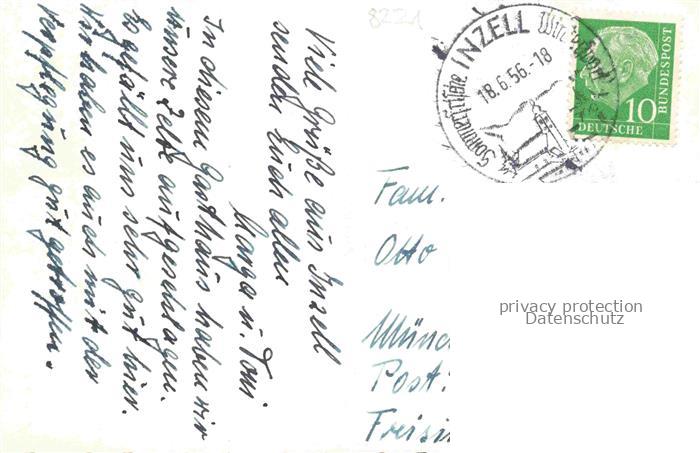 Viele Grüße aus Inzell
senden Euch allen
Marga u. Toni
In diesem Gasthaus haben wir
unsere Zelte aufgeschlagen.
Es gefällt uns sehr gut hier.
Wir haben es auch mit der
Verpflegung gut getroffen.
8221
Sommerfrische INZELL
18.6.56.-18
10
DEUTSCHE
BUNDESPOST
Fam.
Otto
Münc
Post.
Freisi
privacy protection
Datenschutz